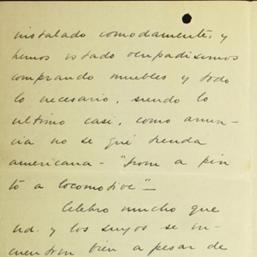 instalado comodamente, y
hemos estado ocupadisimos
comprando muebles y todo
lo necesario, siendo lo
ultimo casi, como anun-
cia no se qué tienda
americana - "from a pin
to a locomotive" -
Celebro mucho que
ud. y los suyos se en-
cuentran bien a pesar de